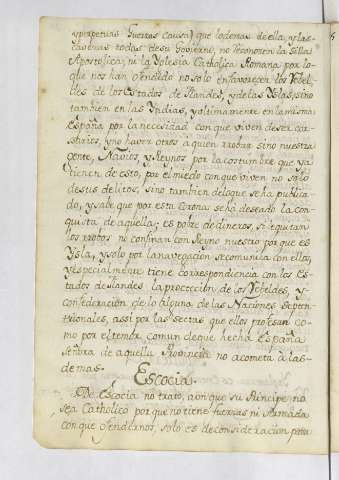 y propertias Guerras causa) que la demas de ella, y las
cavezas todas de su Govierno, no reconocen la Silla
Apostolica, ni la Yglesia Catholica Romana por lo
que nos han ofendido no solo en favorecer los Rebel-
des de los Estados de Flandes, y de las Yslas, sino
tambien en las Yndias, y ultimamente en la misma
España por la necesidad con que viven de ser cor-
sarios, y no haver otros a quien robar sino nuestra
gente, Navios, y Reynos por la costumbre que ya
tienen de esto, por el miedo con que viven no solo
de sus delitos, sino tambien de lo que se ha publica-
do, y sabe que por esta Corona se ha deseado la con-
quista de aquella; es pobre de dineros, si se quitan
los robos ni confinan con Reyno nuestro por que es
Ysla, y solo por la navegacion se comunica con ellos,
y especialmente tiene correspondencia con los Es-
tados de Flandes la proteccion de los Rebeldes, y
confederacion de lo alguna de las Naciones Septen-
trionales, assi por las sectas que ellos profesan co-
mo por el temor comun de que hecha España
Señora de aquella Provincia no acometa à las
demas.
Escocia.
De Escocia no trato, aunque su Principe no
sea Catholico por que no tiene fuerzas ni Armada
con que ofendernos, solo es de consideracion para